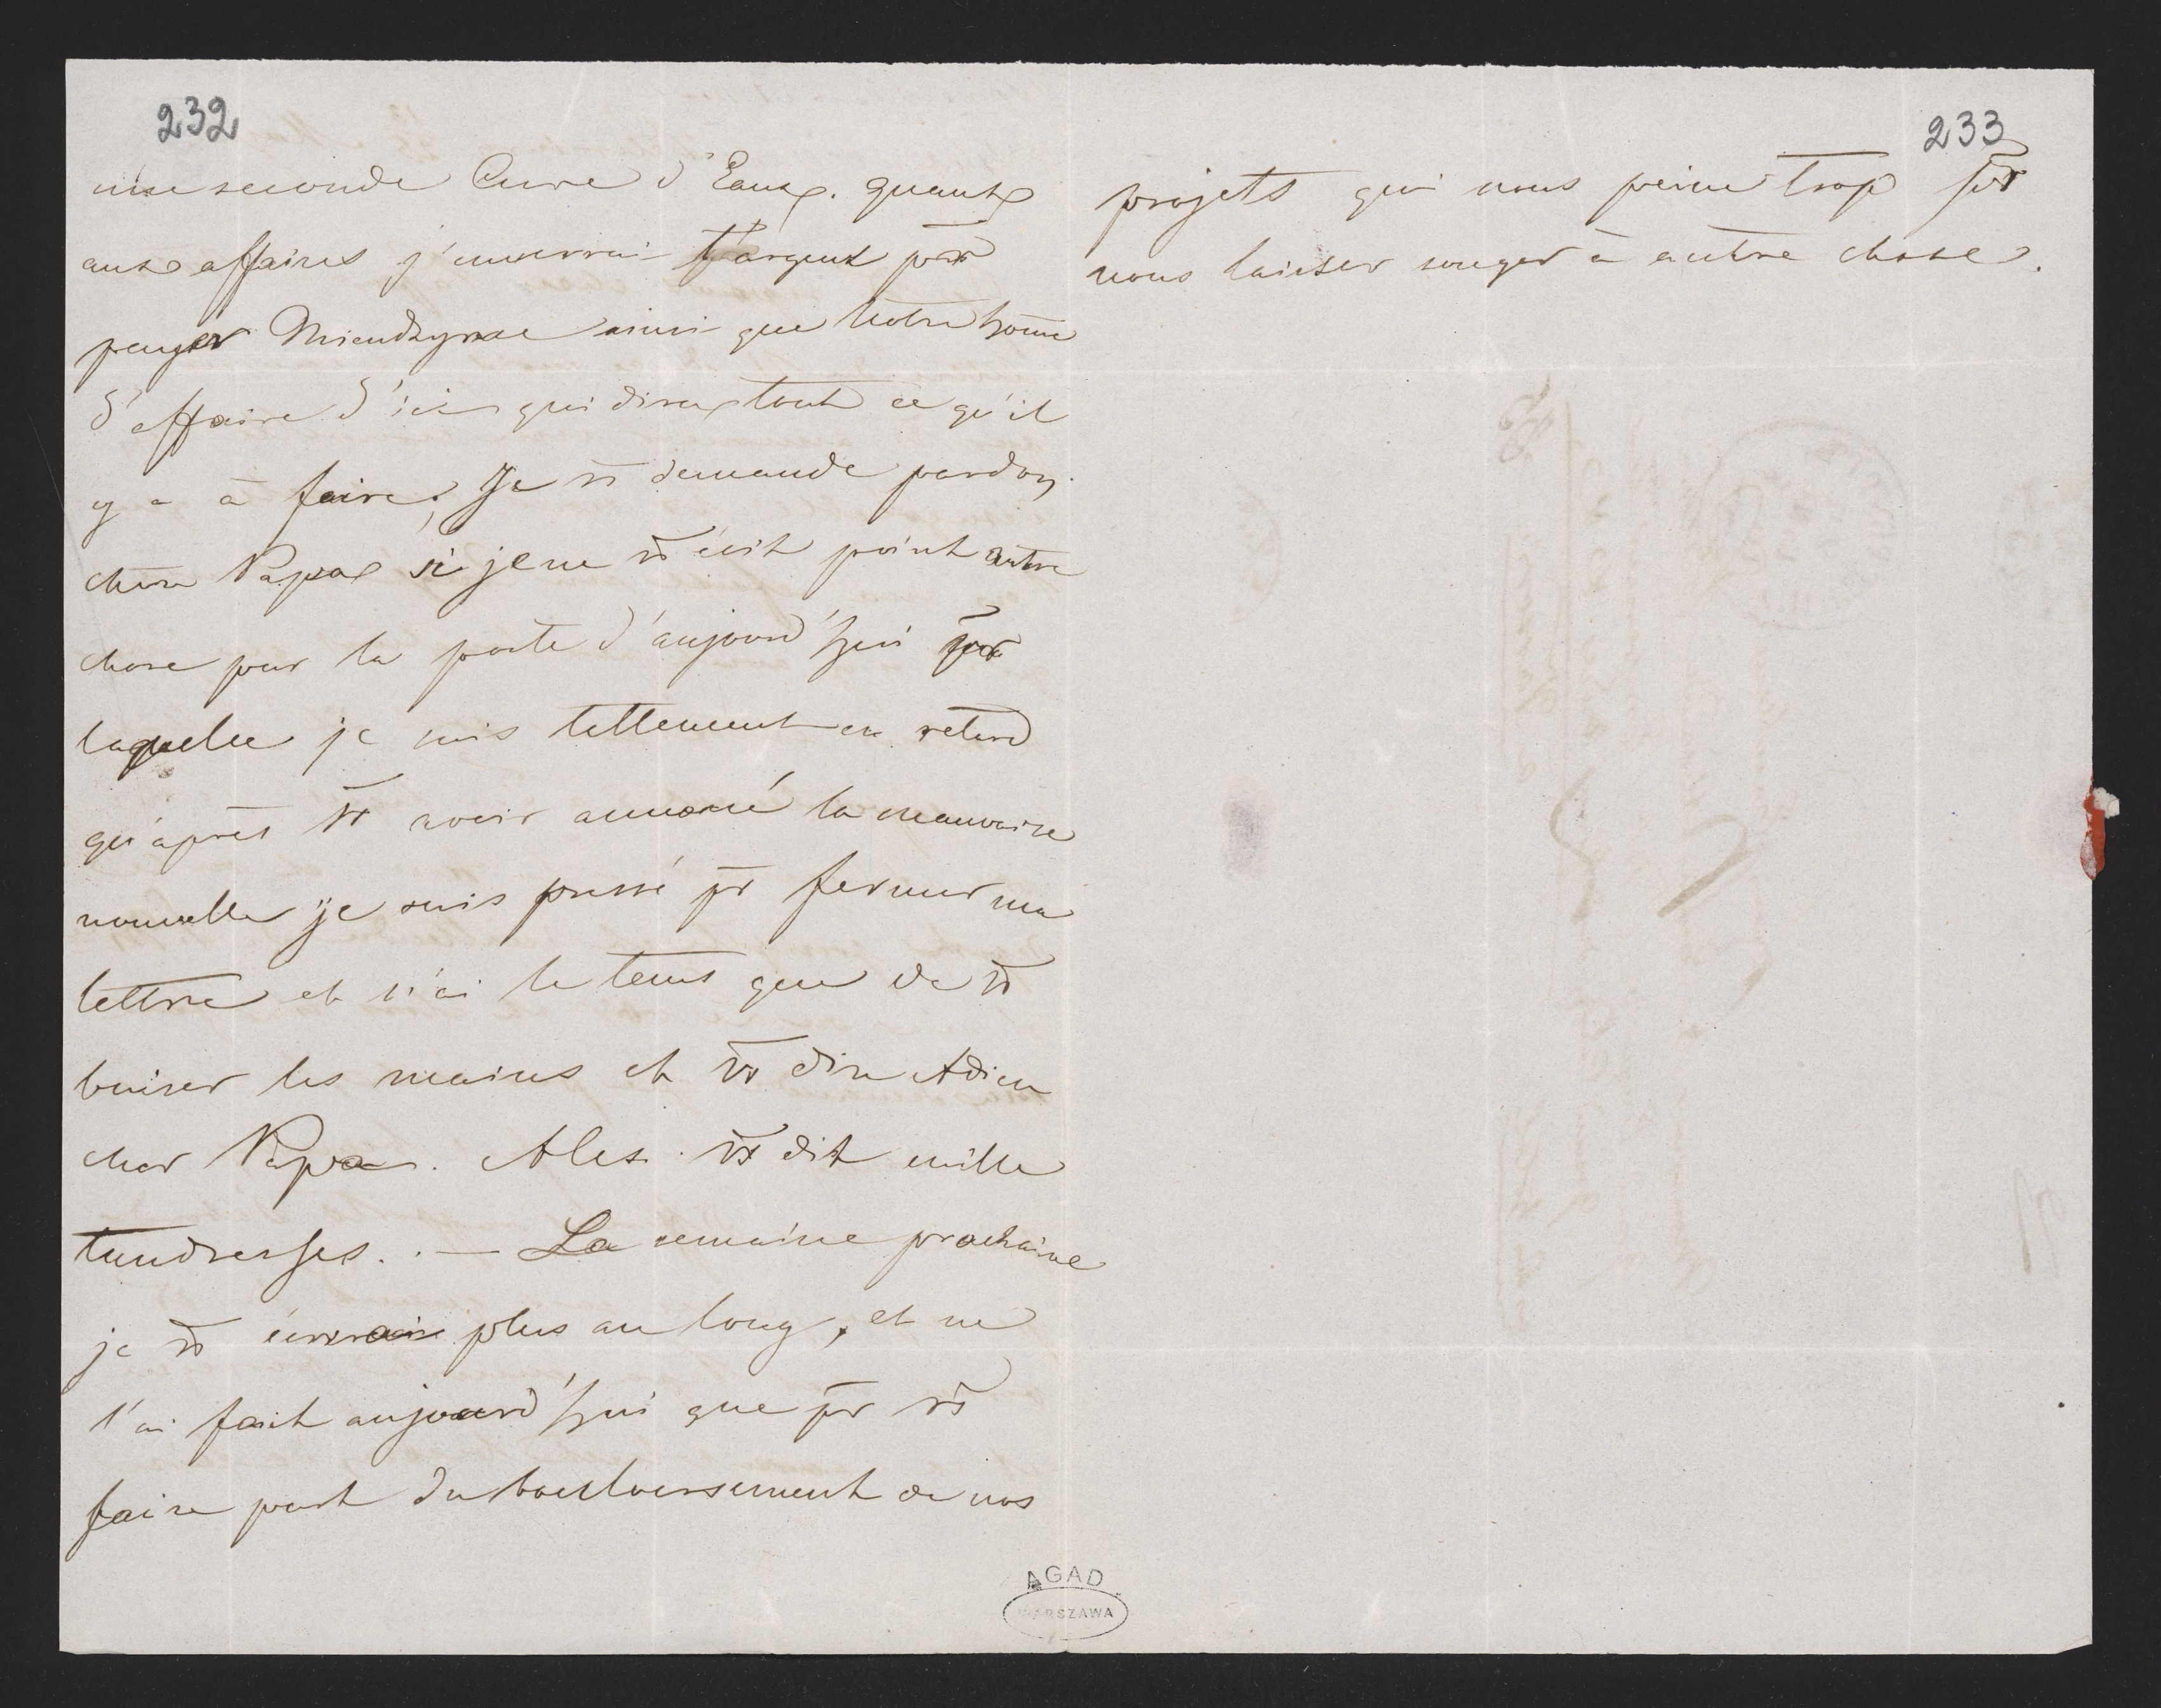 232
une seconde Cure d'Eaux. quant
aux affaires j'enverrai l'argent pr
payer ainsi que notre home
d'affaire d'ici qui dira tout ce qu'il
y a à faire; Je vs demande pardon
cher Papa si je ne vs écrit point autre
chose par la poste d'aujourd'hui pr
laquelle je suis tellement en retard
qu'après vs avoir annoncé la mauvaise
nouvelle je suis pressé pr fermer ma
lettre et n'ai le tems que de vs
baiser les mains et vs dire Adieu
cher Papa. Alex. vs dit mille
tendresses. — La semaine prochaine
je vs écrirais plus au long, et ne
l'ai fait aujourd'hui que pr vs
faire part du boulversement de nos
233
projets qui nous peine trop pr
nous laisser songer à autre chose.
AGAD
WARSZAWA